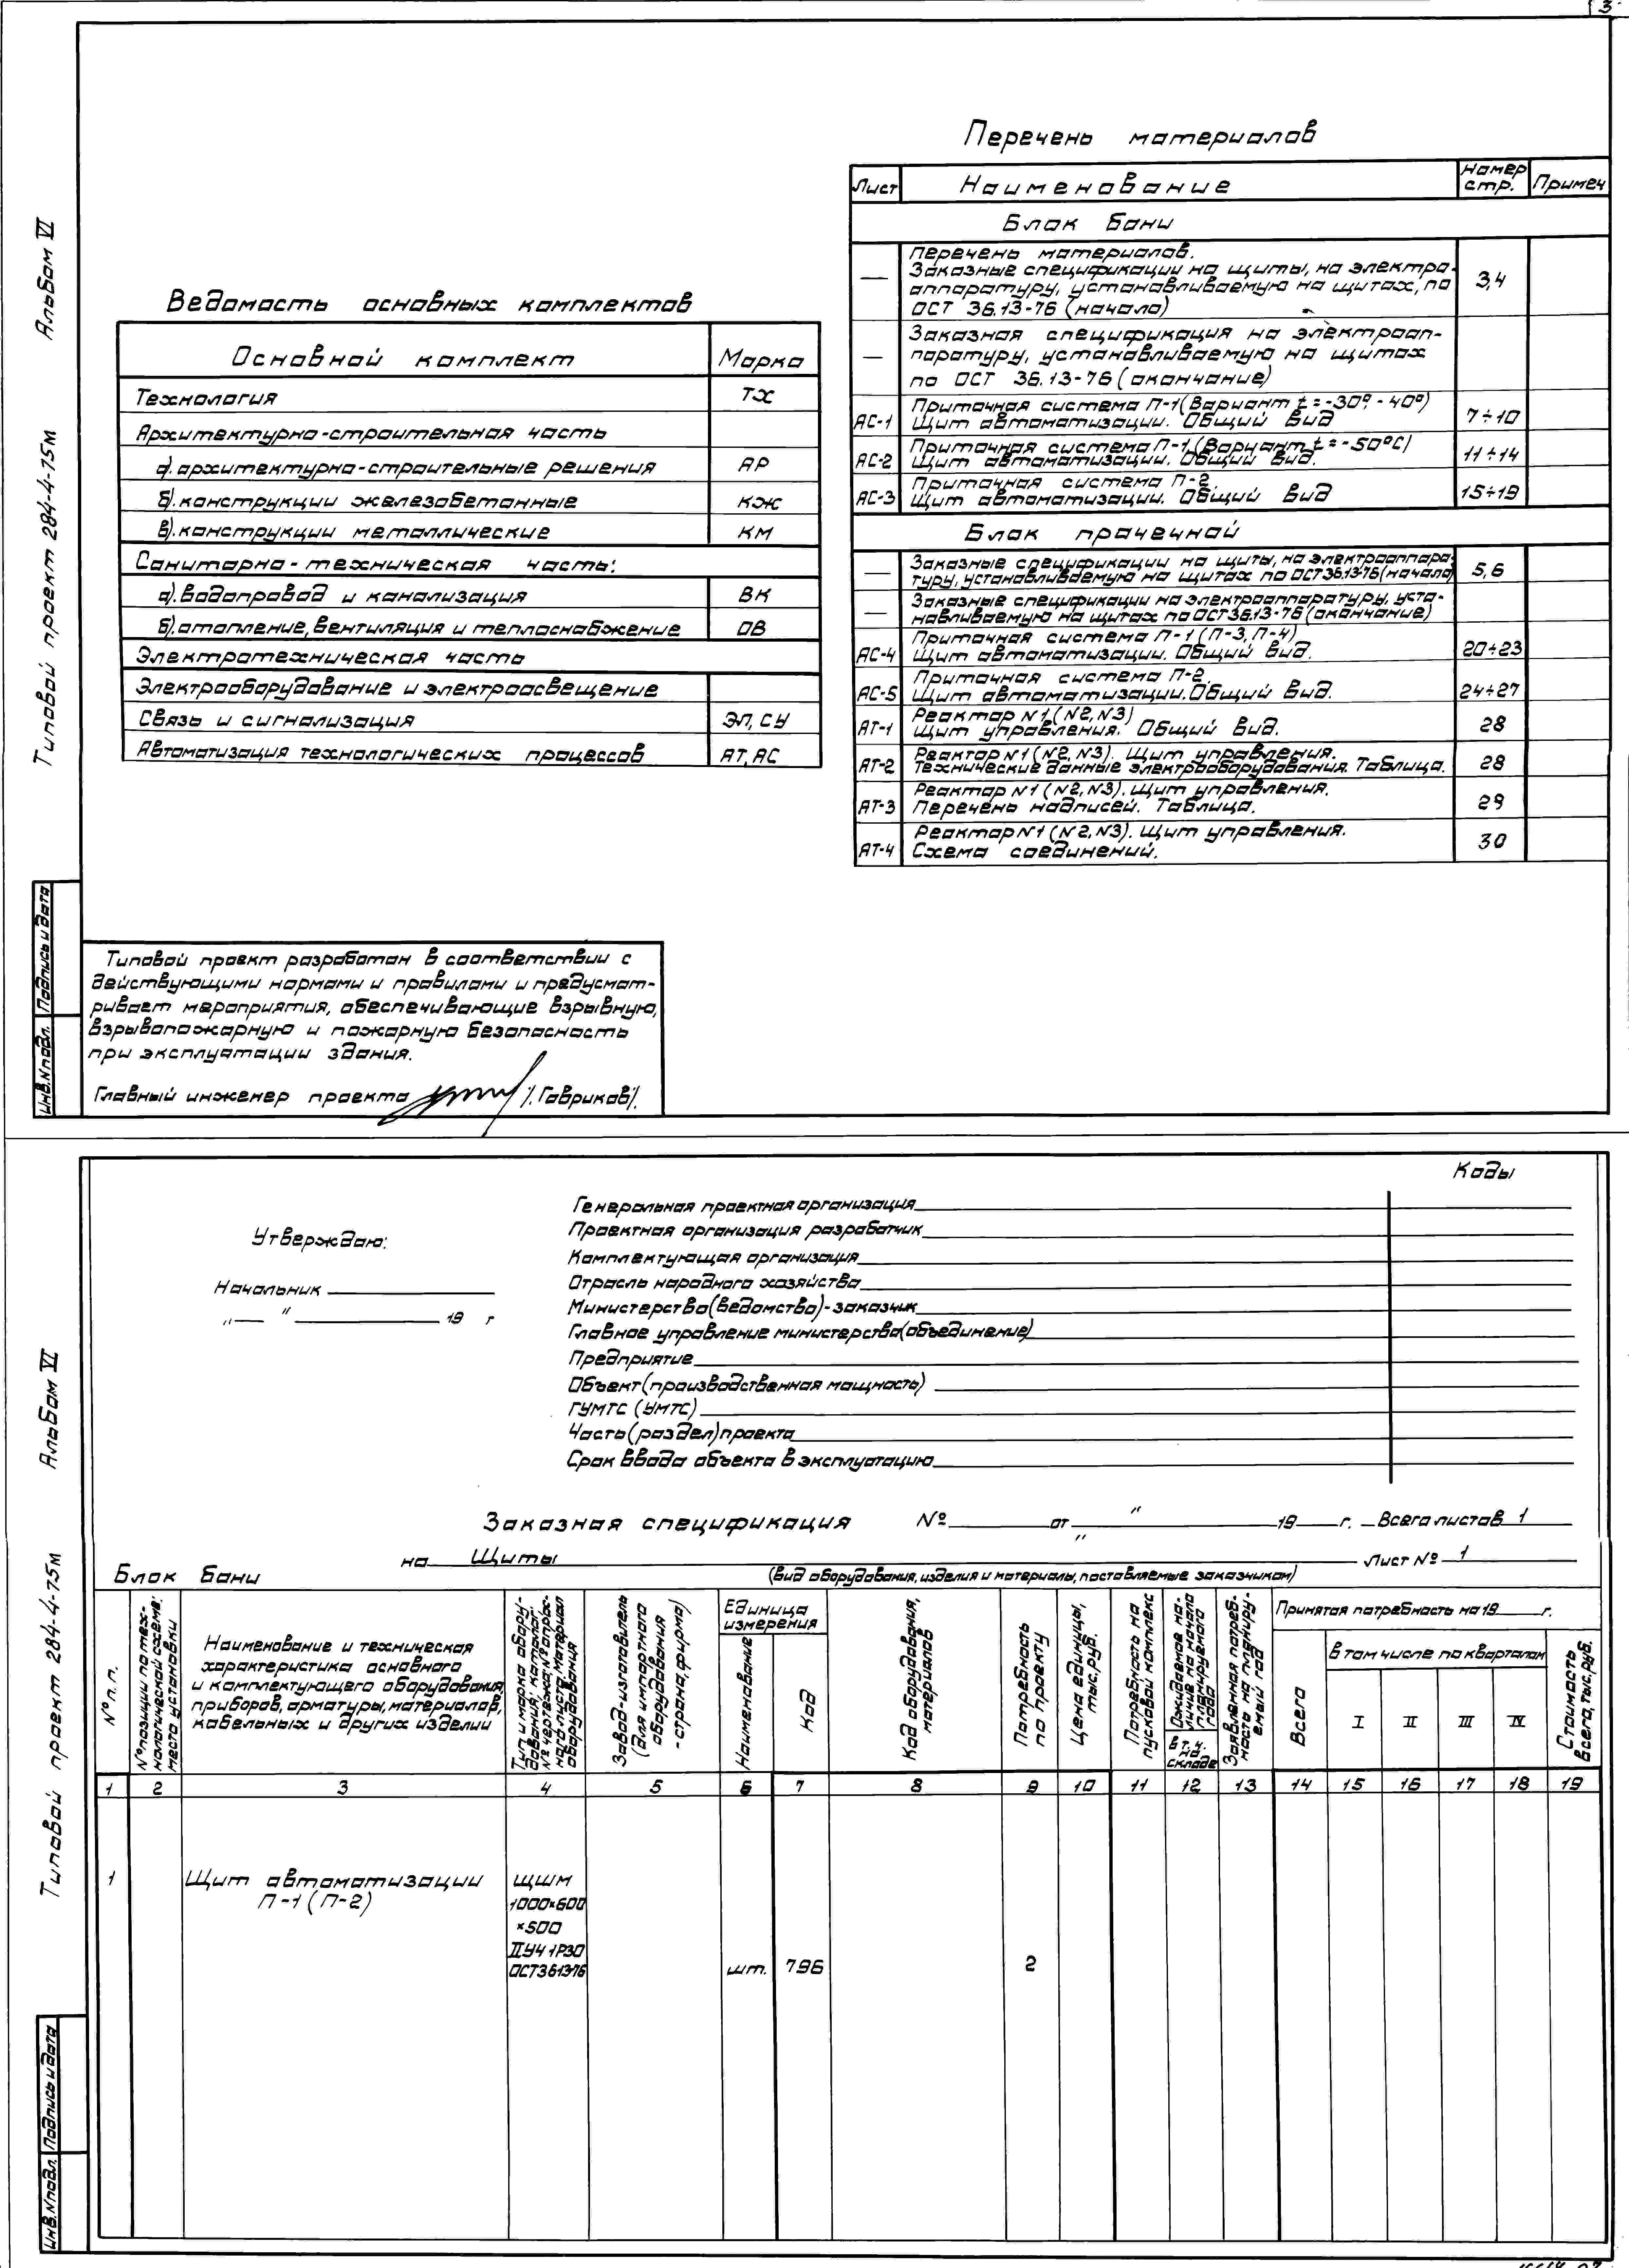 3
Альбом VI
Типовой проект 284-4-75м
Инв.№подл. Подпись и дата
Ведомость основных комплектов
Основной комплект Марка
Технология ТХ
Архитектурно-строительная часть
а). архитектурно-строительные решения АР
б). конструкции железобетонные КЖ
в). конструкции металлические КМ
Санитарно-техническая часть:
а). водопровод и канализация ВК
б). отопление, вентиляция и теплоснабжение ОВ
Электротехническая часть
Электрооборудование и электроосвещение
Связь и сигнализация ЭЛ, СУ
Автоматизация технологических процессов АТ, АС
Перечень материалов
Лист Наименование Номер стр. Примеч
Блок бани
— Перечень материалов.
Заказные спецификации на щиты, на электро-
аппаратуру, устанавливаемую на щитах, по 3,4
ОСТ 36.13-76 (начало)
Заказная спецификация на электроап-
— паратуру, устанавливаемую на щитах
по ОСТ 36.13-76 (окончание)
Приточная система П-1 (Вариант t = -30°, -40°)
АС-1 Щит автоматизации. Общий вид 7÷10
Приточная система П-1 (Вариант t = -50°С)
АС-2 Щит автоматизации. Общий вид. 11÷14
Приточная система П-2.
АС-3 Щит автоматизации. Общий вид 15÷19
Блок прачечной
Заказные спецификации на щиты, на электроаппара-
— туру, устанавливаемую на щитах по ОСТ 36.13-76 (начало) 5,6
Заказные спецификации на электроаппаратуру, уста-
— навливаемую на щитах по ОСТ 36.13-76 (окончание)
Приточная система П-1 (П-3, П-4)
АС-4 Щит автоматизации. Общий вид. 20÷23
Приточная система П-2.
АС-5 Щит автоматизации. Общий вид. 24÷27
Реактор N1, (N2, N3)
АТ-1 Щит управления. Общий вид. 28
Реактор N1 (N2, N3). Щит управления.
АТ-2 Технические данные электрооборудования. Таблица. 28
Реактор N1 (N2, N3). Щит управления.
АТ-3 Перечень надписей. Таблица. 29
Реактор N1 (N2, N3). Щит управления.
АТ-4 Схема соединений. 30
Типовой проект разработан в соответствии с
действующими нормами и правилами и предусмат-
ривает мероприятия, обеспечивающие взрывную,
взрывопожарную и пожарную безопасность
при эксплуатации здания.
Главный инженер проекта /Гавриков/.
Альбом VI
Типовой проект 284-4-75м
Инв.№подл. Подпись и дата
Коды
Утверждаю:
Начальник
"—" 19 г
Генеральная проектная организация
Проектная организация разработчик
Комплектующая организация
Отрасль народного хозяйства
Министерство (ведомство)-заказчик
Главное управление министерства (объединение)
Предприятие
Объект (производственная мощность)
ГУМТС (УМТС)
Часть (раздел) проекта
Срок ввода объекта в эксплуатацию
Заказная спецификация № от " " 19 г. Всего листов 1
на Щиты Лист № 1
Блок бани (вид оборудования, изделия и материалы, поставляемые заказчиком)
№ п.п.
№ позиции по тех-
нологической схеме:
место установки
Наименование и техническая
характеристика основного
и комплектующего оборудования,
приборов, арматуры, материалов,
кабельных и других изделии
Тип и марка обору-
дования; каталог,
№ чертежа, № опрос-
ного листа. Материал
оборудования
Завод-изготовитель
(для импортного
оборудования
-страна, фирма)
Единица
измерения
Наименование
Код
Код оборудования,
материалов
Потребность
по проекту
Цена единицы,
тыс. руб.
Потребность на
пусковой комплекс
Ожидаемое на-
личие на начало
планируемого
года
в т. ч.
на
складе
Заявленная потреб-
ность на планиру-
емый год
Принятая потребность на 19 г.
Всего
в том числе по кварталам
I II III IV
Стоимость
всего, тыс. руб.
1 2 3 4 5 6 7 8 9 10 11 12 13 14 15 16 17 18 19
1 Щит автоматизации ЩШМ
П-1 (П-2) 1000×600
×500
IIУ4 1Р30
ОСТ3613-76 шт. 796 2